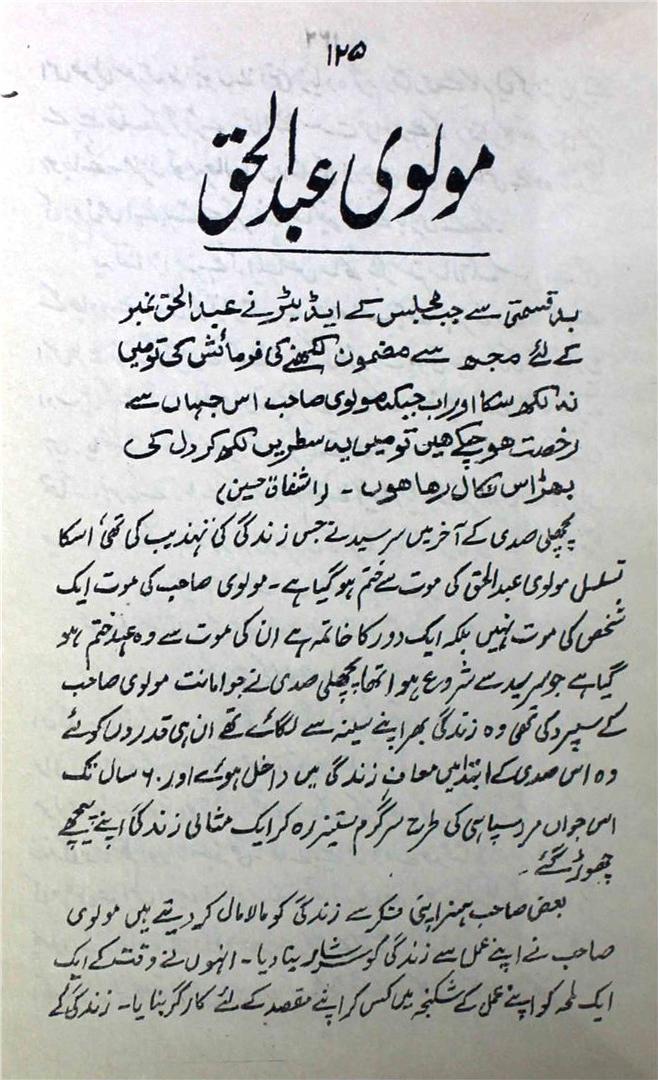 ۱۲۵
مولوی عبدالحق
بدقسمتی سے جب مجلس کے ایڈیٹر نے عبدالحق نمبر
کے لئے مجھ سے مضمون لکھنے کی فرمائش کی تو میں
نہ لکھ سکا اور اب جبکہ مولوی صاحب اس جہاں سے
رخصت ہو چکے ھیں تو میں یہ سطریں لکھ کر دل کی
بھڑاس نکال رھا ھوں ۔ (اشفاق حسین)
پچھلی صدی کے آخر میں سرسید نے جس زندگی کی تہذیب کی تھی، اسکا
تسلسل مولوی عبدالحق کی موت سے ختم ہو گیا ہے ۔ مولوی صاحب کی موت ایک
شخص کی موت نہیں بلکہ ایک دور کا خاتمہ ہے ان کی موت سے وہ عہد ختم ہو
گیا ہے جو سرسید سے شروع ہوا تھا پچھلی صدی نے جو امانت مولوی صاحب
کے سپرد کی تھی وہ زندگی بھر اپنے سینہ سے لگائے تھے ان ہی قدروں کو لئے
وہ اس صدی کے ابتدا میں معاف زندگی میں داخل ہوئے اور ۶۰ سال تک
اس جواں مرد سپاہی کی طرح سرگرم ستیز رہ کر ایک مثالی زندگی اپنے پیچھے
چھوڑ گئے ۔
بعض صاحب ہنر اپنی فکر سے زندگی کو مالامال کر دیتے ہیں مولوی
صاحب نے اپنے عمل سے زندگی کو سرشار بنا دیا ۔ انہوں نے وقت کے ایک
ایک لمحہ کو اپنے عمل کے شکنجہ میں کس کر اپنے مقصد کے لئے کارگر بنایا ۔ زندگی کے